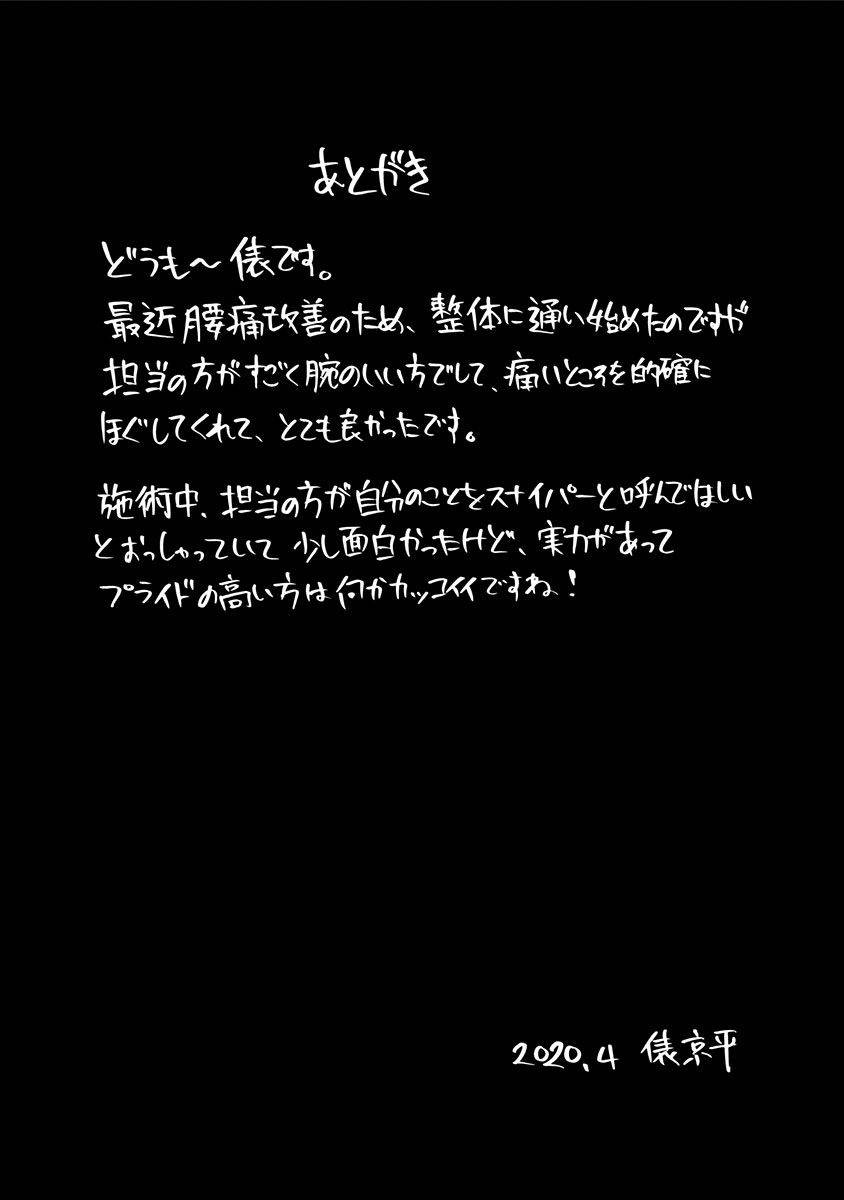 あとがき
どうも～俵です。
最近腰痛改善のため、整体に通い始めたのですが
担当の方がすごく腕のいい方でして、痛いところを的確に
ほぐしてくれて、とても良かったです。
施術中、担当の方が自分のことをスナイパーと呼んでほしい
とおっしゃっていて少し面白かったけど、実力があって
プライドの高い方は何かカッコイイですね！
2020.4 俵京平